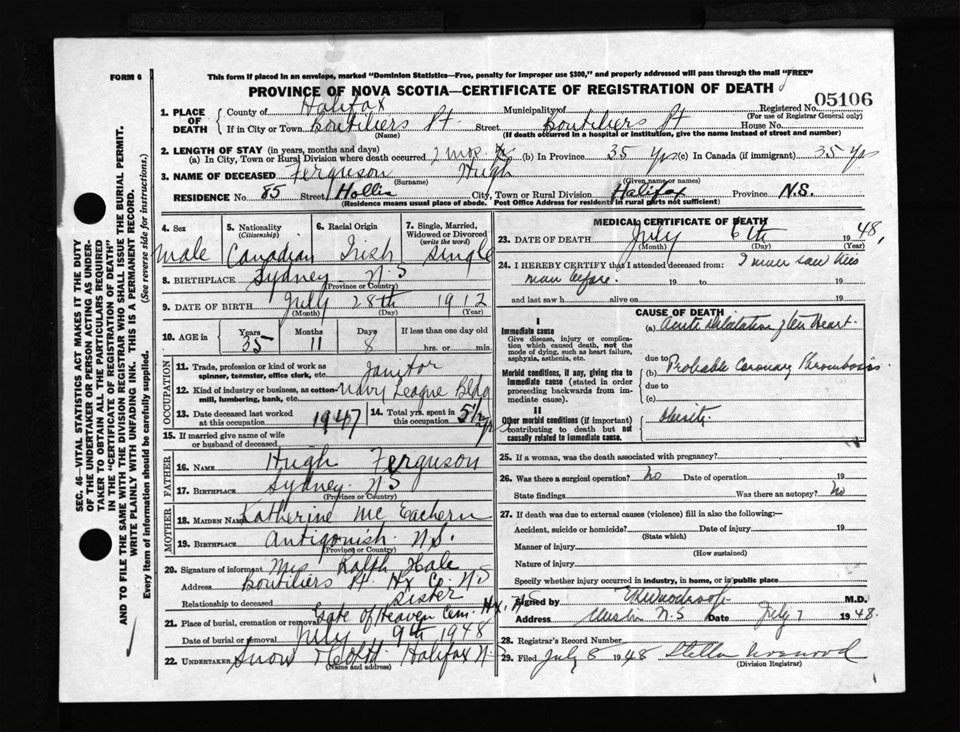 FORM 6
This form if placed in an envelope, marked "Dominion Statistics—Free, penalty for improper use $300," and properly addressed will pass through the mail "FREE"
PROVINCE OF NOVA SCOTIA—CERTIFICATE OF REGISTRATION OF DEATH
SEC. 46—VITAL STATISTICS ACT MAKES IT THE DUTY
OF THE UNDERTAKER OR PERSON ACTING AS UNDER-
TAKER TO OBTAIN ALL THE PARTICULARS REQUIRED
IN THE "CERTIFICATE OF REGISTRATION OF DEATH"
AND TO FILE THE SAME WITH THE DIVISION REGISTRAR WHO SHALL ISSUE THE BURIAL PERMIT.
WRITE PLAINLY WITH UNFADING INK. THIS IS A PERMANENT RECORD.
Every item of information should be carefully supplied. (See reverse side for instructions).
1. PLACE OF DEATH County of Halifax Municipality of Registered No. 05106
(For use of Registrar General only)
If in City or Town Boutiliers Pt Street Boutiliers Pt House No.
(Name) (If death occurred in a hospital or institution, give the name instead of street and number)
2. LENGTH OF STAY (in years, months and days)
(a) In City, Town or Rural Division where death occurred 2 mos. (b) In Province 35 yrs (c) In Canada (if immigrant) 35 yrs
3. NAME OF DECEASED Ferguson Hugh
(Surname) (Given name or names)
RESIDENCE No. 85 Street Hollis City, Town or Rural Division Halifax Province N.S.
(Residence means usual place of abode. Post Office Address for residents in rural parts not sufficient)
4. Sex 5. Nationality (Citizenship) 6. Racial Origin 7. Single, Married, Widowed or Divorced (write the word)
Male Canadian Irish Single
8. BIRTHPLACE Sydney N.S
(Province or Country)
9. DATE OF BIRTH July 28th 1912
(Month) (Day) (Year)
10. AGE in Years Months Days If less than one day old
35 11 8 hrs. or min.
OCCUPATION
11. Trade, profession or kind of work as spinner, teamster, office clerk, etc. Janitor
12. Kind of industry or business, as cotton-mill, lumbering, bank, etc. Navy League Bldg
13. Date deceased last worked at this occupation 1947 14. Total yrs. spent in this occupation 5½ yrs
15. If married give name of wife or husband of deceased
FATHER
16. NAME Hugh Ferguson
17. BIRTHPLACE Sydney N.S
(Province or Country)
MOTHER
18. MAIDEN NAME Katherine Mc Eachern
19. BIRTHPLACE Antigonish N.S.
(Province or Country)
20. Signature of informant Mrs Ralph Hale
Address Boutiliers Pt Hx Co. N.S
Relationship to deceased Sister
21. Place of burial, cremation or removal Gate of Heaven Cem. Hx. N.S
Date of burial or removal July 9th 1948
22. UNDERTAKER Snow & Co Ltd Halifax N.S
(Name and address)
MEDICAL CERTIFICATE OF DEATH
23. DATE OF DEATH July 6th 1948,
(Month) (Day) (Year)
24. I HEREBY CERTIFY that I attended deceased from: I never saw this
man before. 19 to 19
and last saw h alive on 19
CAUSE OF DEATH
I
Immediate cause
Give disease, injury or complication which caused death, not the mode of dying, such as heart failure, asphyxia, asthenia, etc.
(a) Acute Dilatation of the Heart.
due to
Morbid conditions, if any, giving rise to immediate cause (stated in order proceeding backwards from immediate cause).
(b) Probable Coronary Thrombosis
due to
(c)
II
Other morbid conditions (if important) contributing to death but not causally related to immediate cause.
Obesity.
25. If a woman, was the death associated with pregnancy?
26. Was there a surgical operation? No Date of operation 19
State findings Was there an autopsy? No
27. If death was due to external causes (violence) fill in also the following:—
Accident, suicide or homicide? Date of injury 19
(State which)
Manner of injury
(How sustained)
Nature of injury
Specify whether injury occurred in industry, in home, or in public place
Signed by M.D.
Address N.S Date July 7 1948.
28. Registrar's Record Number
29. Filed July 8 1948 Stella
(Division Registrar)